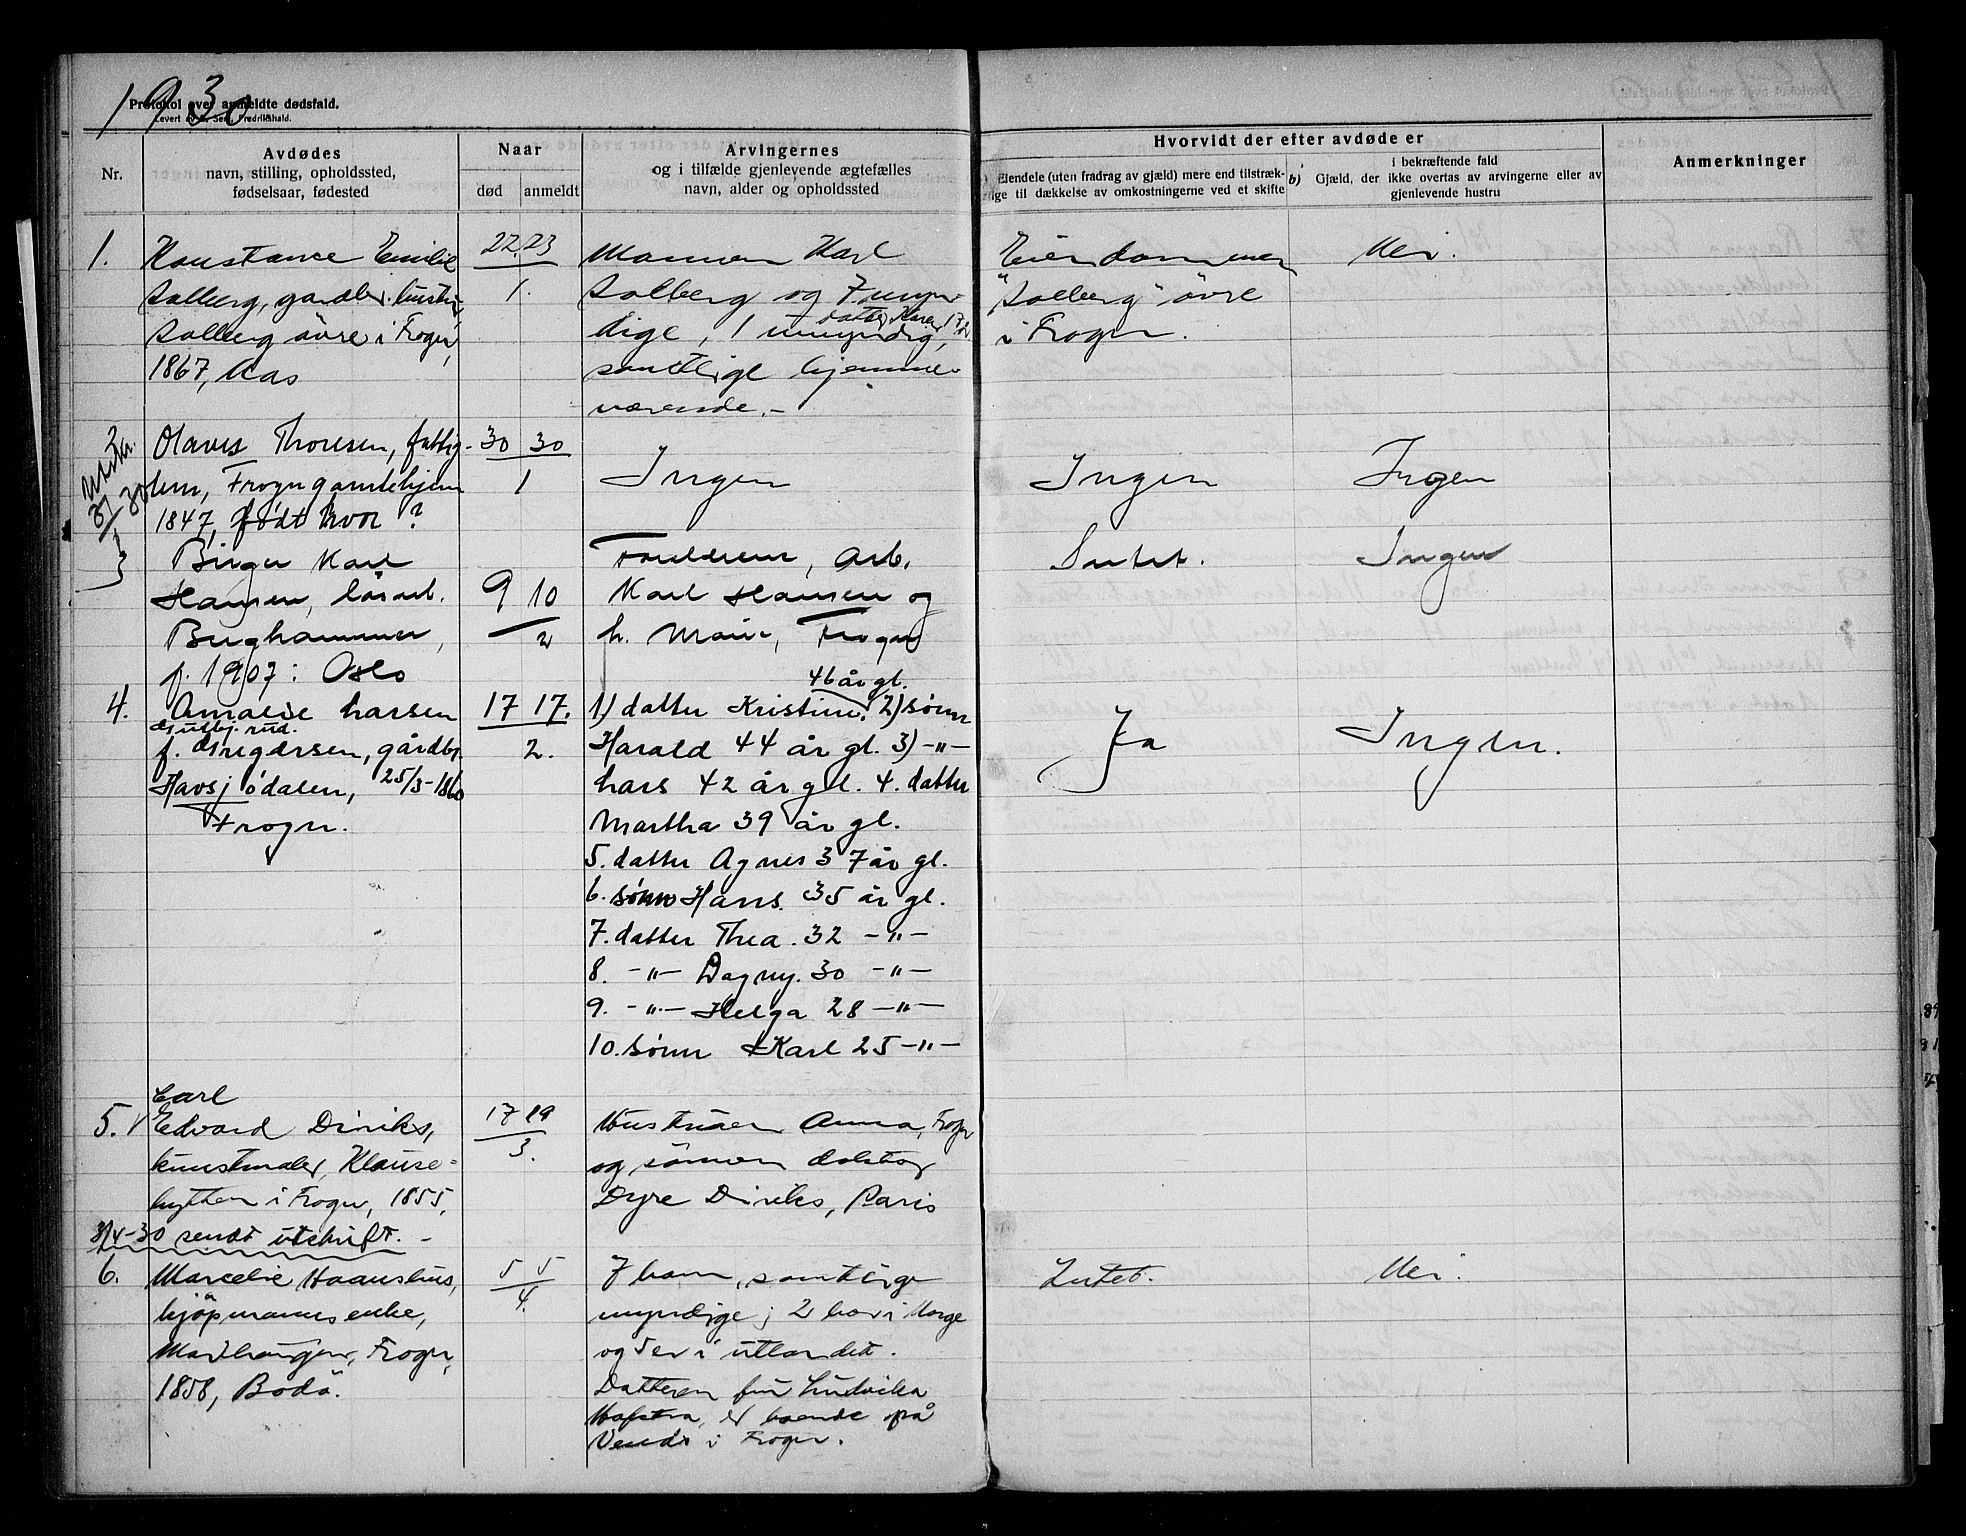 1930
Protokol over anmeldte dødsfald.
Fredrikshald.
Nr.
Avdødes
navn, stilling, opholdssted,
fødselsaar, fødested
Naar
død anmeldt
Arvingernes
og i tilfælde gjenlevende ægtefælles
navn, alder og opholdssted
Hvorvidt der efter avdøde er
Eiendele (uten fradrag av gjæld) mere end tilstræk-
lige til dækkelse av omkostningerne ved et skifte
b) Gjæld, der i bekræftende fald
ikke overtas av arvingerne eller av
gjenlevende hustru
Anmerkninger
1.
Konstance Emilie
Solberg, gardbr. hustru
Solberg øvre i Frogn,
1867, Aas
22. 23
1.
Mannen Karl
Solberg og 7 myn-
dige, 1 umyndig,
datter Karen 17
samtlige hjemme-
værende.-
Eiendommen
"Solberg" øvre
i Frogn.
Nei.
2
Utskr.
Olaves Thoresen, fattig-
lem, Frogn gamlehjem
1847, født hvor ?
30 30
1
Ingen
Ingen
Ingen
3
Birger Karl
Hansen, løsarb.
Berghammer,
f. 1907: Oslo
9 10
2
Foreldrene, Arb.
Karl Hansen og
h. Marie, Frogn
Intet.
Ingen
4.
Amalie Larsen
f. Gregersen, gårdbr.
Havsjødalen, 25/3-1860
Frogn.
17 17.
2.
46 år gl.
1) datter Kristine, 2) sønn
Harald 44 år gl. 3) -"-
Lars 42 år gl. 4. datter
Martha 39 år gl.
5. datter Agnes 37 år gl.
6. sønn Hans. 35 år gl.
7. datter Thea. 32 -"-
8. -"- Dagny. 30 -"-
9. -"- Helga 28 -"-
10. sønn Karl 25 -"-
Ja
Ingen.
5. V
Carl
Edvard Diriks,
kunstmaler, Klause-
hytten i Frogn, 1855,
3/4-30 sendt utskrift. -
17 19
3.
Hustruen Anna, Frogn
og sønnen doktor
Dyre Diriks, Paris
6.
Marcelie Haanshus,
kjøpmanns enke,
Frogn,
1858, Bodø.
5 5
4.
7 barn, samtlige
myndige; 2 bor i Norge
og 5 er i utlandet.
Datteren fru Ludvika
Hofstra, er boende på
i Frogn.
Intet.
Nei.